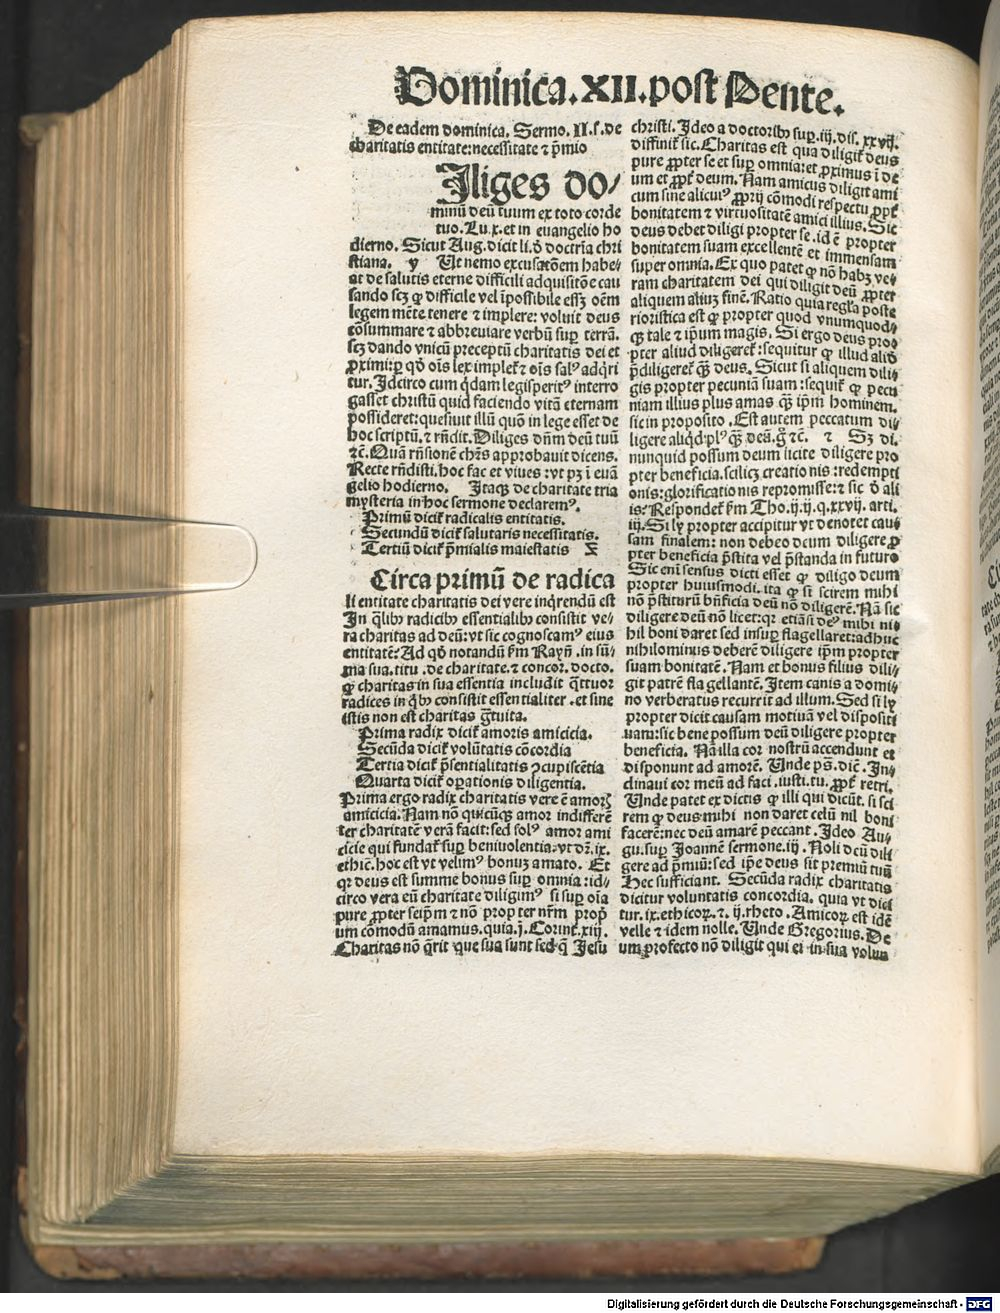 Dominica.XII.post Pente.
De eadem dominica. Sermo. II.s.de
charitatis entitate:necessitate ⁊ p̄mio
Iliges do/
minū deū tuum ex toto corde
tuo. Lu.x. et in euangelio ho
dierno. Sicut Aug. dicit li. ð doctrīa chri
stiana. y Ut nemo excusatōem habe/
at de salutis eterne difficili adquisitōe cau
sando scꝫ ꝙ difficile vel īpossibile essꝫ oēm
legem mēte tenere ⁊ implere: voluit deus
cōsummare ⁊ abbreuiare verbū suꝑ terrā.
scꝫ dando vnicū preceptū charitatis dei et
ꝓximi: ꝑ qð oīs lex impletꝛ ⁊ oīs salꝰ adq̄ri
tur. Idcirco cum q̇dam legisperitꝰ interro
gasset christū quid faciendo vitā eternam
possideret: quesiuit illū quō in lege esset de
hoc scriptū. ⁊ rn̄dit. Diliges dn̄m deū tuū
⁊c̄. Quā rn̄sionē chr̄s approbauit dicens.
Recte rn̄disti. hoc fac et viues: vt pꝫ ī euā
gelio hodierno. Itaqꝫ de charitate tria
mysteria in hoc sermone declaremꝰ.
Primū dicitꝛ radicalis entitatis.
Secundū dicitꝛ salutaris necessitatis.
Tertiū dicitꝛ p̄mialis maiestatis X
Circa primū de radica
li entitate charitatis dei vere inq̇rendū est
In q̇libꝫ radicibꝫ essentialibꝫ consistit ve/
ra charitas ad deū: vt sic cognoscamꝰ eius
entitatē: Ad qð notandū fm Rayn̄. in sū/
ma sua. titu. de charitate. ⁊ concor. docto.
ꝙ charitas in sua essentia includit q̄ttuor
radices in q̇bꝫ consistit essentialiter. et sine
istis non est charitas gr̄tuita.
Prima radix dicitꝛ amoris amicicia.
Secūda dicitꝛ volūtatis cōcordia
Tertia dicitꝛ p̄sentialitatis ꝯcupiscētia
Quarta dicitꝛ oꝑationis diligentia.
Prima ergo radix charitatis vere ē amorꝭ
amicicia. Nam nō quicūqꝫ amor indifferē
ter charitatē verā facit: sed solꝰ amor ami
cicie qui fundatꝛ suꝑ beniuolentia. vt dꝛ̄. ix.
ethic̄. hoc est vt velimꝰ bonuꝫ amato. Et
qꝛ deus est summe bonus suꝑ omnia: id/
circo vera eū charitate diligimꝰ si suꝑ oīa
pure ꝓpter seip̄m ⁊ nō propter nr̄m propꝛ̄
um cōmodū amamus. quia. j. Corint̄. xiij.
Charitas nō q̄rit que sua sunt sed q̄ Jesu
christi. Ideo a doctoribꝫ suꝑ. iij. dis. xxvij.
diffinitꝛ sic. Charitas est qua diligitꝛ deus
pure ꝓpter se et suꝑ omnia: et ꝓximus ī de
um et ꝓptꝛ deum. Nam amicus diligit ami
cum sine alicuiꝰ ꝓprij cōmodi respectu ꝓptꝛ
bonitatem ⁊ virtuositatē amici illius. Sic
deus debet diligi propter se. id ē propter
bonitatem suam excellentē et immensam
super omnia. Ex quo patet ꝙ nō habꝫ ve/
ram charitatem dei qui diligit deū ꝓpter
aliquem aliuꝫ finē. Ratio quia regl̄a poste
rioristica est ꝙ propter quod vnumquod/
qꝫ tale ⁊ ip̄um magis. Si ergo deus pro/
pter aliud diligeretꝛ: sequitur ꝙ illud aliō
p̄diligeretꝛ qꝫ̄ deus. Sicut si aliquem dili/
gis propter pecuniā suam: sequitꝛ ꝙ pecu
niam illius plus amas qꝫ̄ ip̄m hominem.
sic in proposito. Est autem peccatum di/
ligere aliq̇d plꝰ qꝫ̄ deū. g̊ ⁊c̄. ⁊ Sꝫ di.
nunquid possum deum licite diligere pro
pter beneficia. scilicꝫ creationis: redempti
onis: glorificationis repromisse: ⁊ sic ð ali
is: Respondetꝛ fm Tho. ij. ij. q. xxvij. arti.
iij. Si ly propter accipitur vt denotet cau/
sam finalem: non debeo deum diligere ꝓ
pter beneficia p̄stita vel p̄standa in futuro
Sic enī sensus dicti esset ꝙ diligo deum
propter huiusmodi. ita ꝙ si scirem mihi
nō p̄stiturū bn̄ficia deū nō diligerē. Nā sic
diligere deū nō licet: qꝛ etiāsi deꝰ mihi ni/
hil boni daret sed insuꝑ flagellaret: adhuc
nihilominus deberē diligere ip̄m propter
suam bonitatē. Nam et bonus filius dili/
git patrē flagellantē. Item canis a domi/
no verberatus recurrit ad illum. Sed si ly
propter dicit causam motiuā vel dispositi
uam: sic bene possum deū diligere propter
beneficia. Nā illa cor nostrū accendunt et
disponunt ad amorē. Unde pꝭ. dic̄. In/
clinaui cor meū ad faci. iusti. tu. ꝓptꝛ retri.
Unde patet ex dictis ꝙ illi qui dicūt. si sci
rem ꝙ deus mihi non daret celū nil boni
facerē: nec deū amarē peccant. Ideo Au/
gu. suꝑ Joannē sermone. iij. Noli deū dili
gere ad p̄miū: sed ip̄e deus sit premiū tuū
Hec sufficiant. Secūda radix charitatis
dicitur voluntatis concordia. quia vt dici
tur. ix. ethicoꝝ. ⁊. ij. rheto. Amicoꝝ est idē
velle ⁊ idem nolle. Unde Gregorius. De
um profecto nō diligit qui ei in sua volun
Digitalisierung gefördert durch die Deutsche Forschungsgemeinschaft - DFG